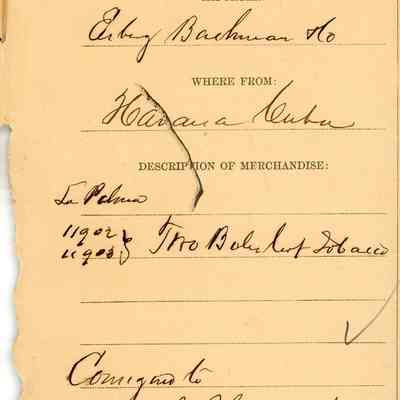 Esberg Bachman & Co
WHERE FROM:
Havana Cuba
DESCRIPTION OF MERCHANDISE:
La Palma
11902
11903 } Two Bales leaf Tobacco
Consigned to